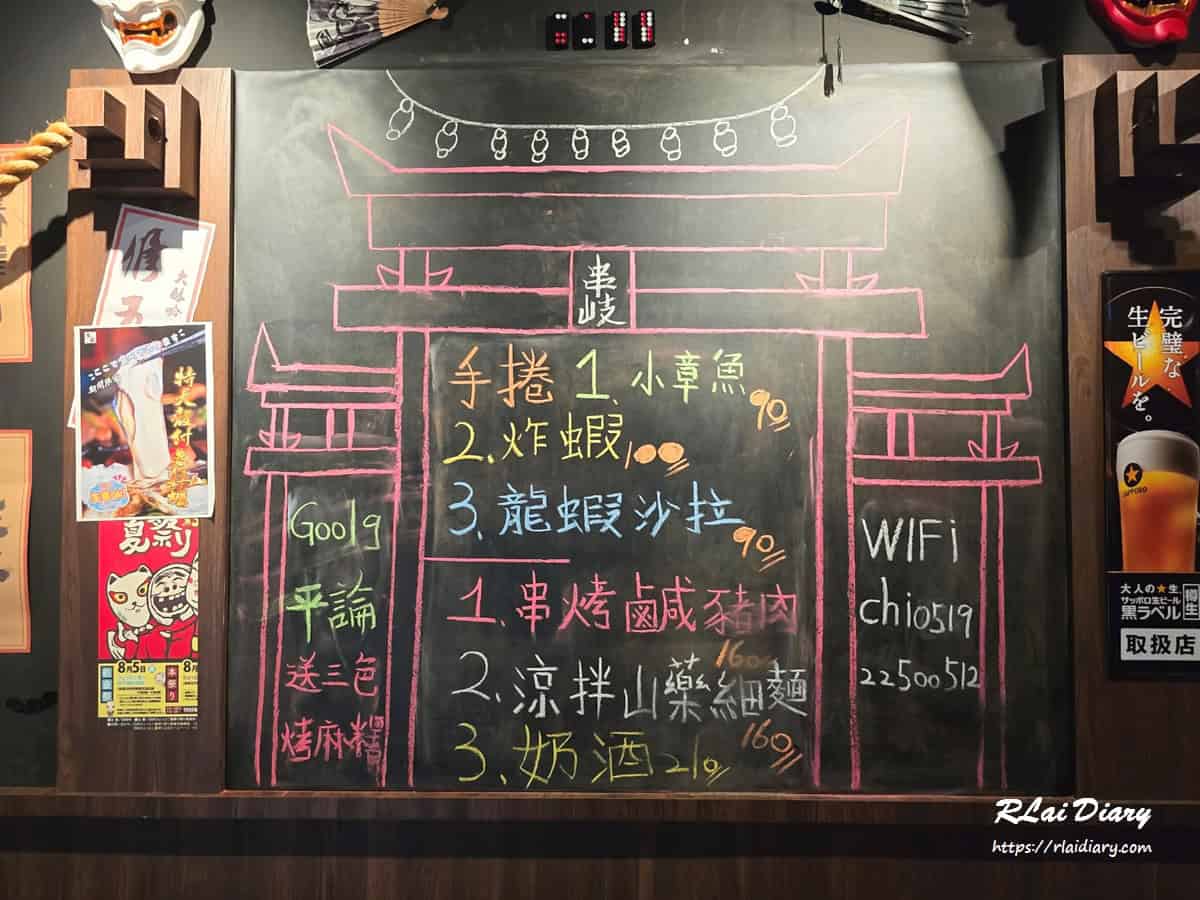 串岐
手捲 1. 小章魚 90
2. 炸蝦 100
3. 龍蝦沙拉 90
1. 串烤鹹豬肉 160
2. 涼拌山藥細麵 160
3. 奶酒 210
Goolg
平論
送三色
烤麻糬
WIFi
chi0519
22500512
期間限定
夏祭り
8月5日
本祭り
完璧な
生ビールを。
SAPPORO
大人の★生
サッポロ生ビール
黒ラベル
樽生
取扱店
RLai Diary
https://rlaidiary.com